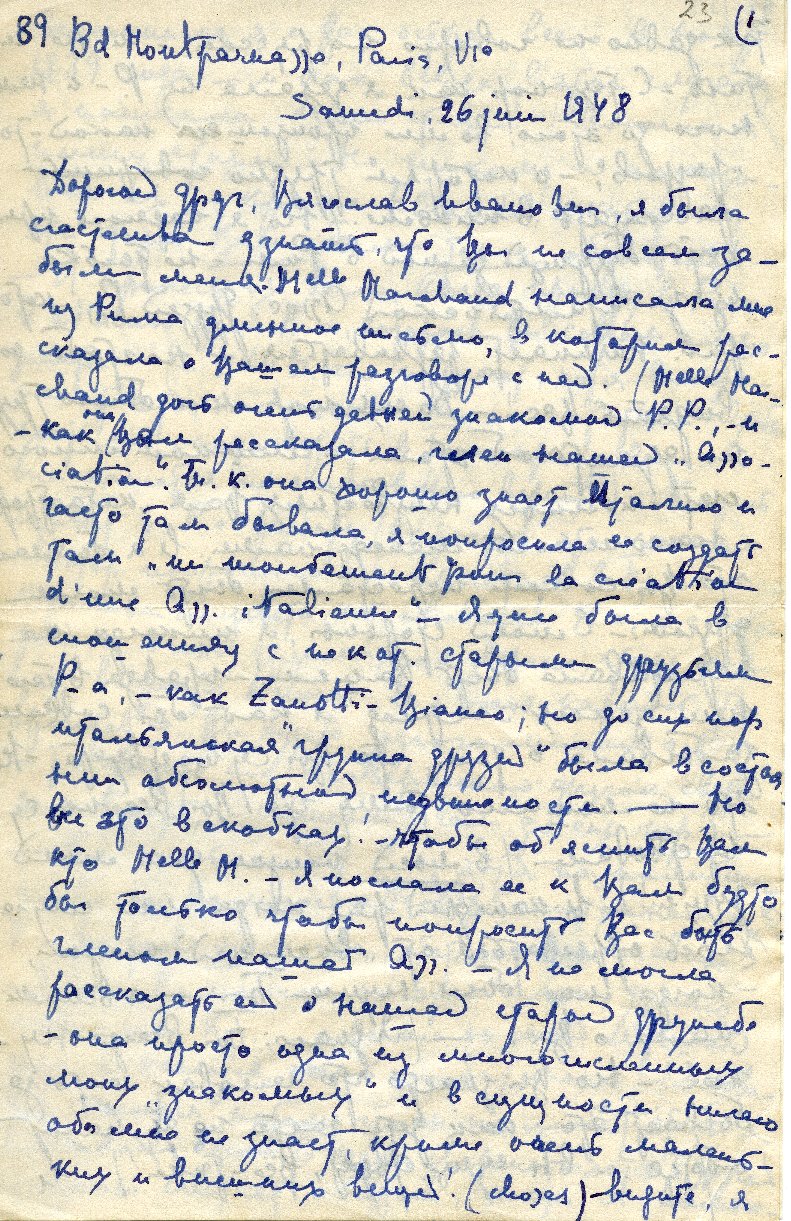 23 (1
89 Bd Montparnasse, Paris, VIe
Samedi, 26 juin 1948
Дорогой друг, Вячеслав Иванович, я была
счастлива узнать, что Вы не совсем за-
были меня. Melle Marchand написала мне
из Рима длинное письмо, в котором рас-
сказала о Вашем разговоре с ней. (Melle Mar-
chand дочь очень давней знакомой Р.Р., – и
– как она Вам рассказала, член нашей „Asso-
ciation“. Т. к. она хорошо знает Италию и
часто там бывала, я попросила ее создать
там „un mouvement pour la création
d'une Ass. italienne“ – Я уже была в
сношениях с некот. старыми друзьями
Р-а, – как Zanotti-Bianco; но до сих пор
итальянская „группа друзей“ была в состоя
нии абсолютной недвижности. — Но
все это в скобках. – чтобы объяснить Вам
кто Melle M. – Я послала ее к Вам будто
бы только чтобы попросить Вас быть
членом нашей Ass. – Я не могла
рассказать ей о нашей старой дружбе
– она просто одна из многочисленных
моих „знакомых“ и в сущности ничего
обо мне не знает, кроме очень малень-
ких и внешних вещей. (choses) – видите, я